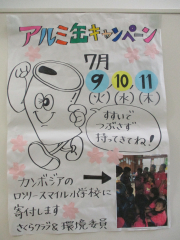 アルミ缶キャンペーン
7月
9 10, 11
(火)(水)(木)
すすいで
つぶさず
持ってきてね!
カンボジアの
ロツリースマイル小学校に
寄付します
さくらクラブ&環境委員